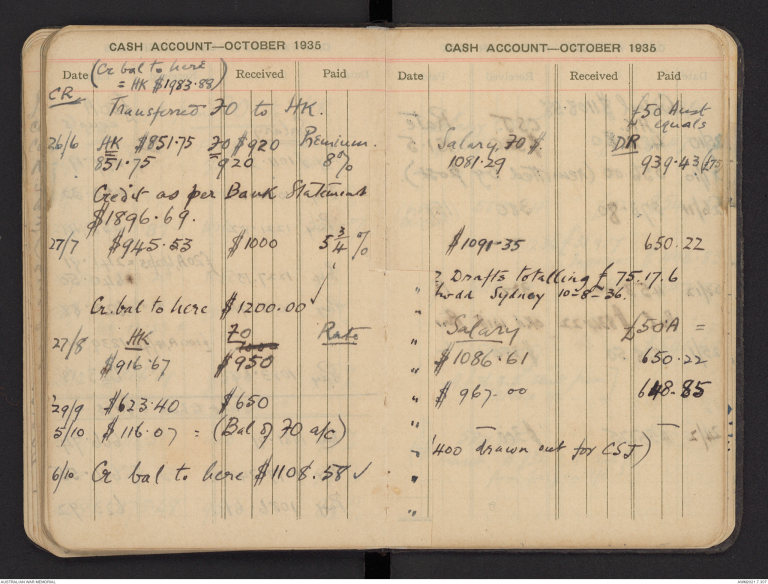 CASH ACCOUNT—OCTOBER 1935
(Cr bal to here
= HK $1983.88)
Date Received Paid
CR
Transferred FO to HK.
26/6 HK $851.75 FO $920 Premium
851.75 920 8%
Credit as per Bank Statement
$1896.69.
27/7 $945.53 $1000 5 3/4 %
Cr. bal to here $1200.00 ✓
27/8 HK FO Rate
$916.67 $950
29/9 $623.40 $650
5/10 $116.07 = (Bal of FO a/c)
6/10 Cr bal to here $1108.58 ✓
CASH ACCOUNT—OCTOBER 1935
Date Received Paid
£50 Aust
equals
Salary FO $. DR
1081.29 939.43 (£75
$1091.35 650.22
2 Drafts totalling £75.17.6
Sydney 10-8-36.
" Salary £50A =
" $1086.61 650.22
" $967.00 648.85
" (400 drawn out for CSJ)
"
"
AUSTRALIAN WAR MEMORIAL